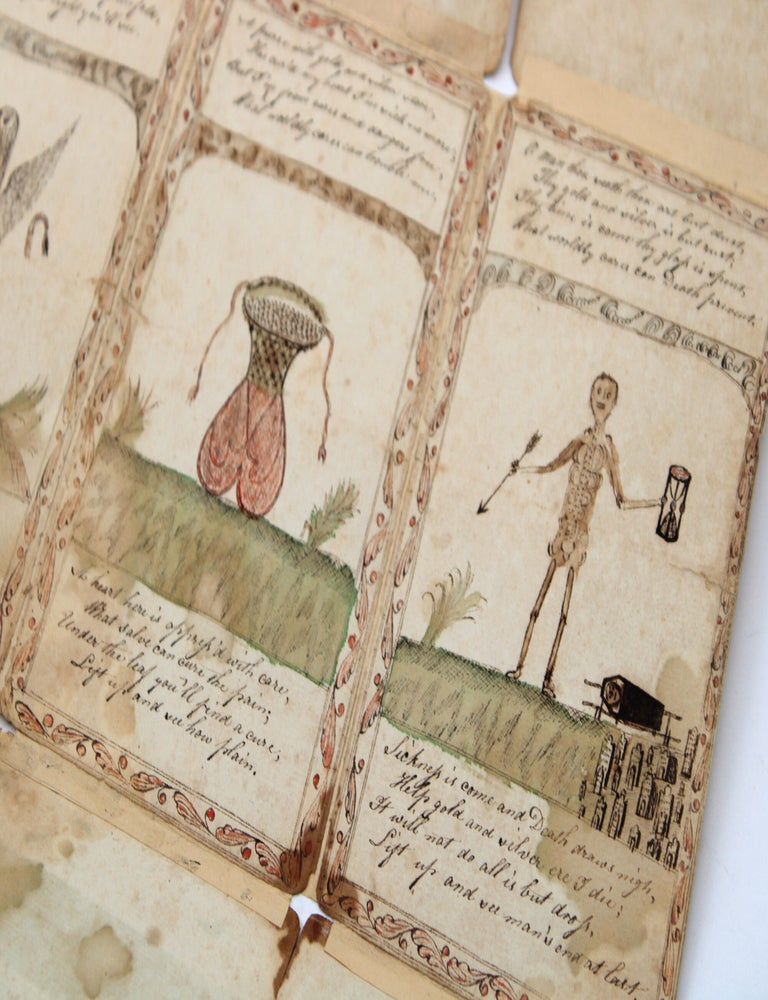 A purse with gold and silver store,
To cure my heart I'll wish no more;
But I've gone
What worldly care can trouble me.
O man then with thou art but dust,
Thy gold and silver is but rust;
Thy time is come thy glass is spent,
What worldly care can Death prevent.
A heart here is oppreſs'd with care,
What salve can cure the pain;
Under the leaf you'll find a cure,
Lift up and see how plain.
Sickneſs is come and Death draws nigh,
Help gold and silver ere I die;
It will not do all is but droſs,
Lift up and see man's end at last